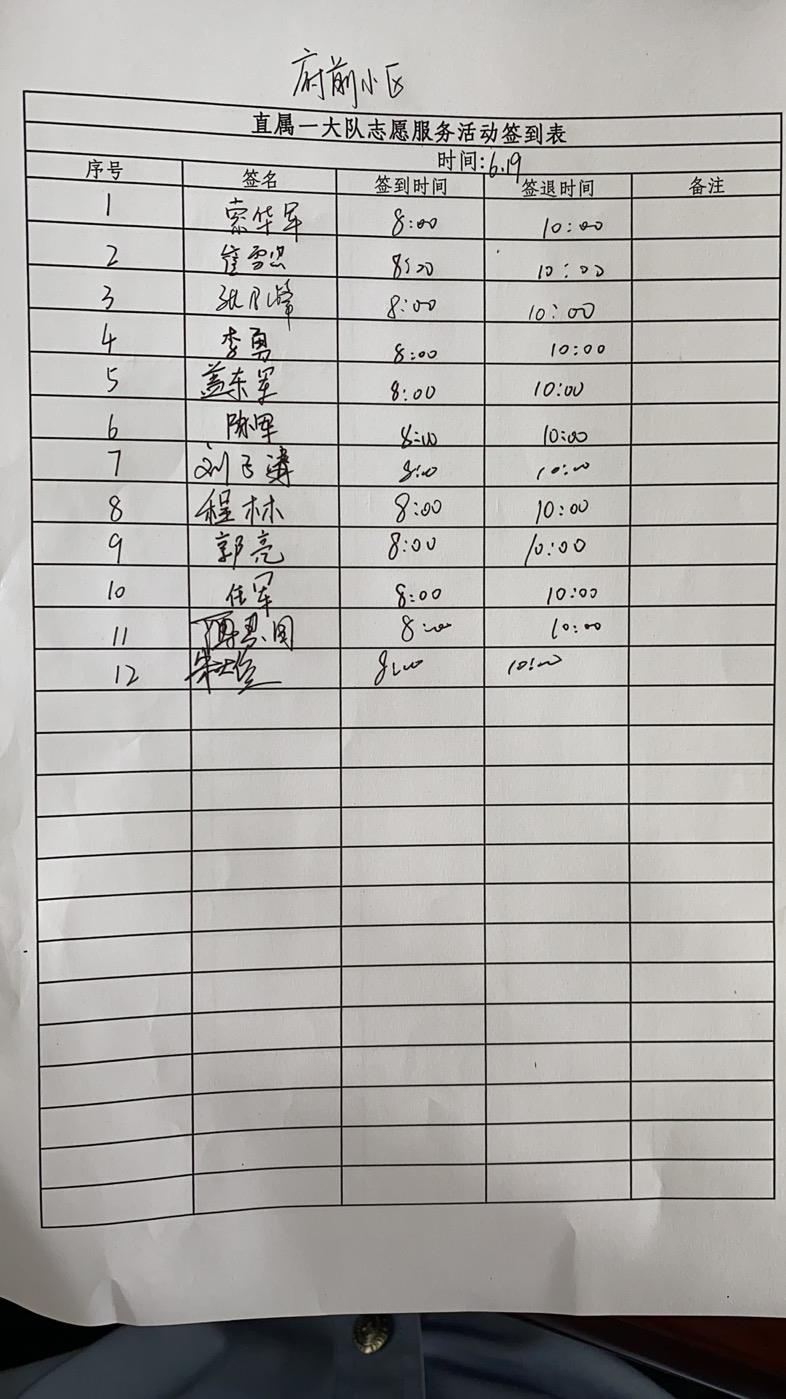 府前小区
直属一大队志愿服务活动签到表
时间:6.19
序号 签名 签到时间 签退时间 备注
1 索华军 8:00 10:00
2 8:00 10:00
3 8:00 10:00
4 李勇 8:00 10:00
5 盖东军 8:00 10:00
6 陈军 8:00 10:00
7 刘飞涛 8:00 10:00
8 程林 8:00 10:00
9 郭亮 8:00 10:00
10 任军 8:00 10:00
11 8:00 10:00
12 8:00 10:00